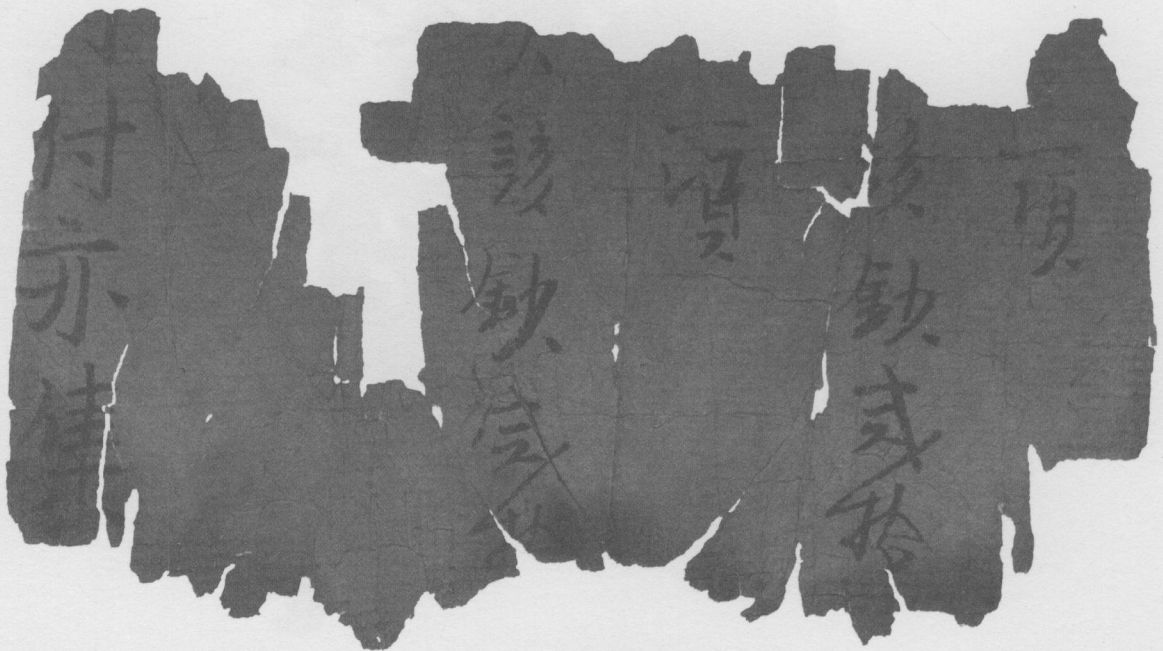 一項
該鈔貳拾
一項
該鈔貳
付亦集